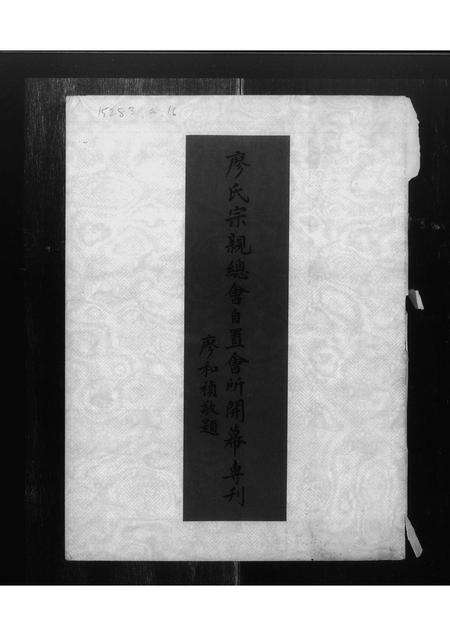 15283 a 16
廖氏宗親總會自置會所開幕專刊
廖和禎敬題